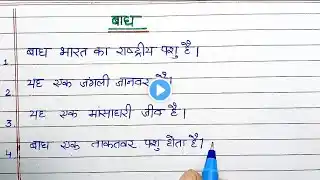 बाघ
1 बाघ भारत का राष्ट्रीय पशु है।
2 यह एक जंगली जानवर है।
3 यह एक मांसाहारी जीव है।
4 बाघ एक ताकतवर पशु होता है।